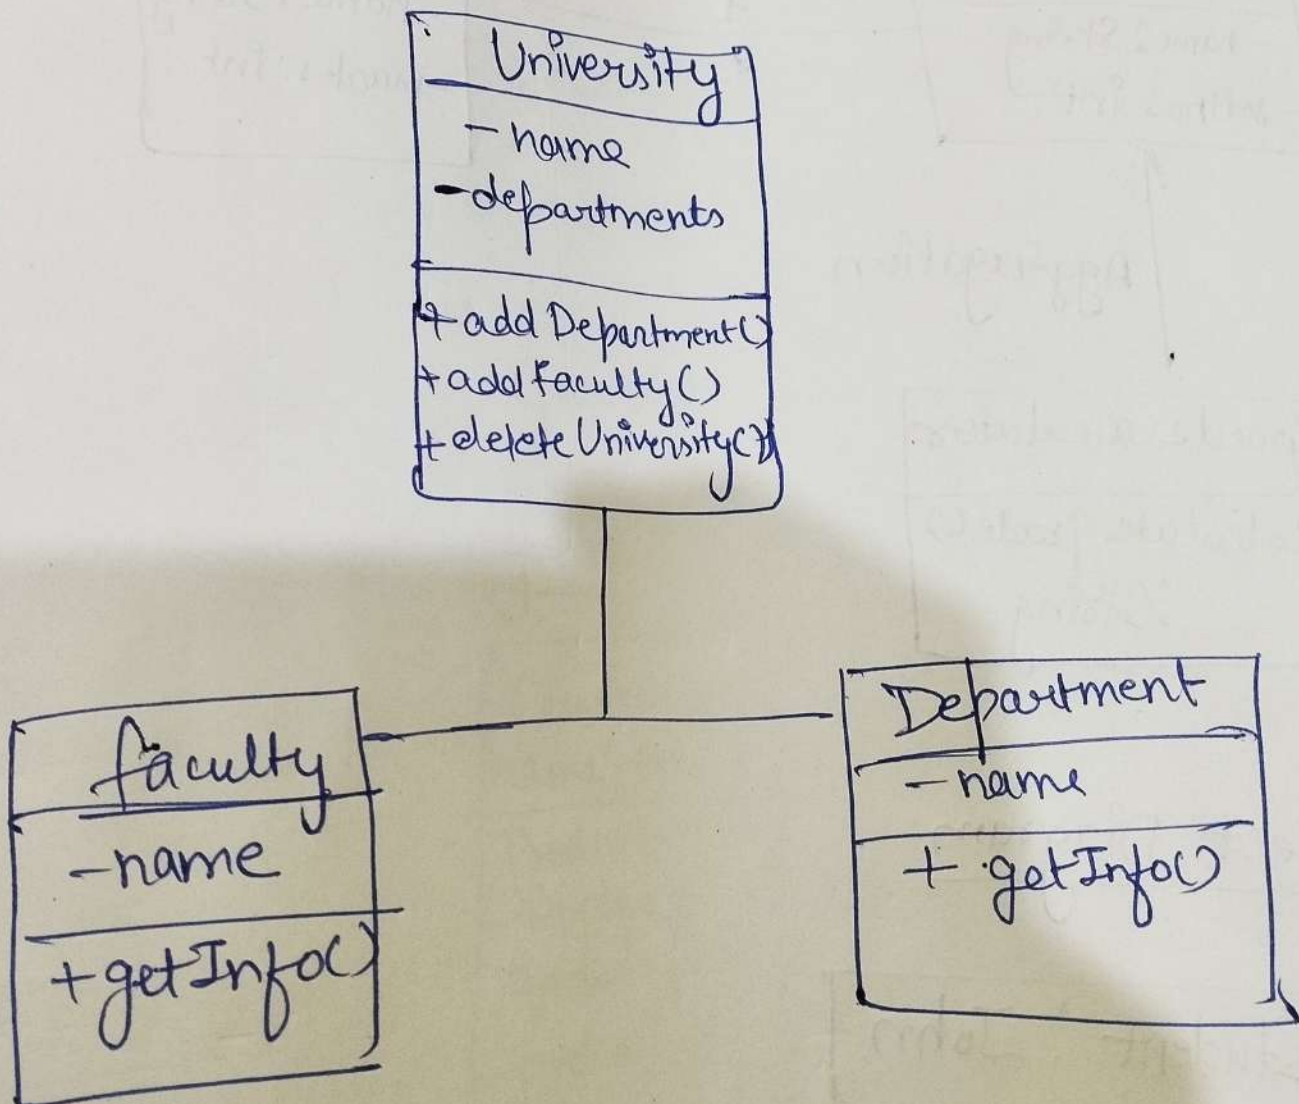 University
- name
- departments
+ addDepartment()
+ addfaculty()
+ deleteUniversity()
faculty
- name
+ getInfo()
Department
- name
+ getInfo()
Aggregation